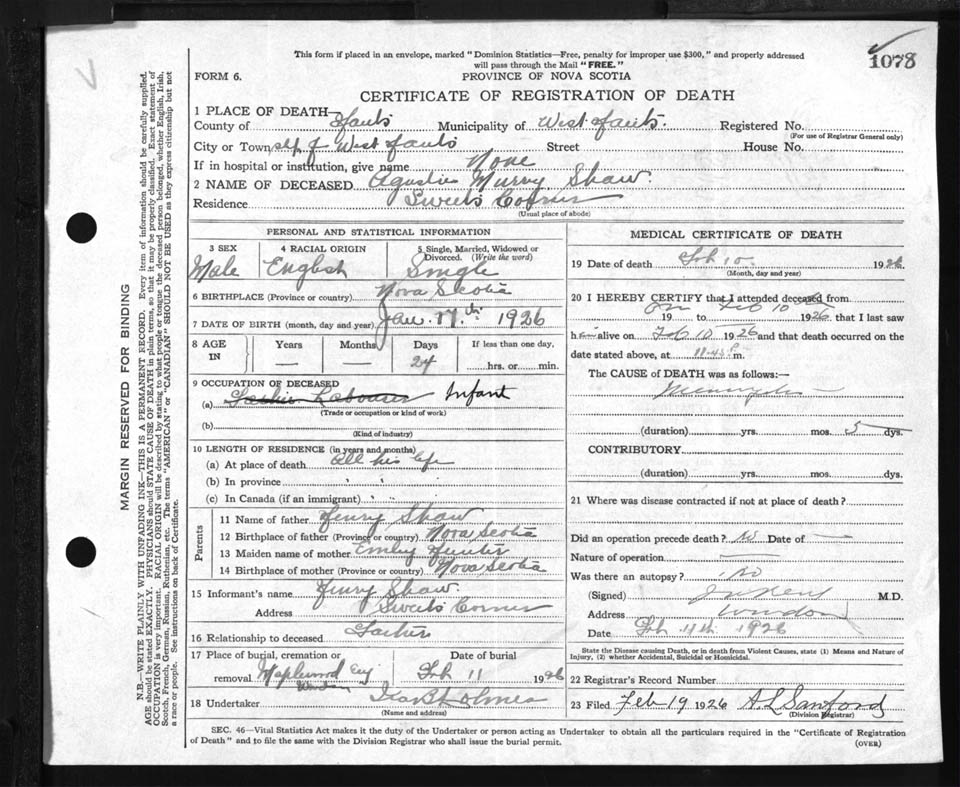 This form if placed in an envelope, marked "Dominion Statistics—Free, penalty for improper use $300," and properly addressed
will pass through the Mail "FREE."
1078
FORM 6.
PROVINCE OF NOVA SCOTIA
CERTIFICATE OF REGISTRATION OF DEATH
1 PLACE OF DEATH
County of Hants Municipality of West Hants. Registered No.
(For use of Registrar General only)
City or Town of West Hants Street House No.
If in hospital or institution, give name None
2 NAME OF DECEASED Murry Shaw.
Residence Sweets Corner
(Usual place of abode)
PERSONAL AND STATISTICAL INFORMATION
3 SEX 4 RACIAL ORIGIN 5 Single, Married, Widowed or Divorced. (Write the word)
Male English Single
6 BIRTHPLACE (Province or country) Nova Scotia
7 DATE OF BIRTH (month, day and year) Jan. 17th 1926
8 AGE IN Years Months Days If less than one day,
— — 24 hrs. or min.
9 OCCUPATION OF DECEASED
(a) Labourer Infant
(Trade or occupation or kind of work)
(b)
(Kind of industry)
10 LENGTH OF RESIDENCE (in years and months)
(a) At place of death all his life
(b) In province " "
(c) In Canada (if an immigrant) " "
Parents
11 Name of father Henry Shaw
12 Birthplace of father (Province or country) Nova Scotia
13 Maiden name of mother Emily Hunter
14 Birthplace of mother (Province or country) Nova Scotia
15 Informant's name Henry Shaw.
Address Sweets Corner
16 Relationship to deceased Father
17 Place of burial, cremation or removal Date of burial
Maplewood Windsor Feb 11 1926
18 Undertaker Holmes
(Name and address)
MEDICAL CERTIFICATE OF DEATH
19 Date of death Feb 10 1926
(Month, day and year)
20 I HEREBY CERTIFY that I attended deceased from
on Feb 10
19 to 1926 that I last saw
h alive on Feb 10 1926 and that death occurred on the
date stated above, at 11-45 P m.
The CAUSE of DEATH was as follows:—
Meningitis
(duration) yrs. mos. 5 dys.
CONTRIBUTORY
(duration) yrs. mos. dys.
21 Where was disease contracted if not at place of death?
Did an operation precede death? No Date of —
Nature of operation —
Was there an autopsy? No
(Signed) M.D.
Address Windsor
Date Feb 11th 1926
State the Disease causing Death, or in death from Violent Causes, state (1) Means and Nature of
Injury, (2) whether Accidental, Suicidal or Homicidal.
22 Registrar's Record Number
23 Filed Feb 19 1926 A L Sanford
(Division Registrar)
SEC. 46—Vital Statistics Act makes it the duty of the Undertaker or person acting as Undertaker to obtain all the particulars required in the "Certificate of Registration
of Death" and to file the same with the Division Registrar who shall issue the burial permit.
(OVER)
MARGIN RESERVED FOR BINDING
N.B.—WRITE PLAINLY WITH UNFADING INK—THIS IS A PERMANENT RECORD. Every item of information should be carefully supplied.
AGE should be stated EXACTLY. PHYSICIANS should STATE CAUSE OF DEATH in plain terms, so that it may be properly classified. Exact statement of
OCCUPATION is very important. RACIAL ORIGIN will be described by stating to what people or tongue the deceased person belonged, whether English, Irish,
Scotch, French, German, Russian, Ruthenian, etc. The terms "AMERICAN" or "CANADIAN" SHOULD NOT BE USED as they express citizenship but not
a race or people. See instructions on back of Certificate.